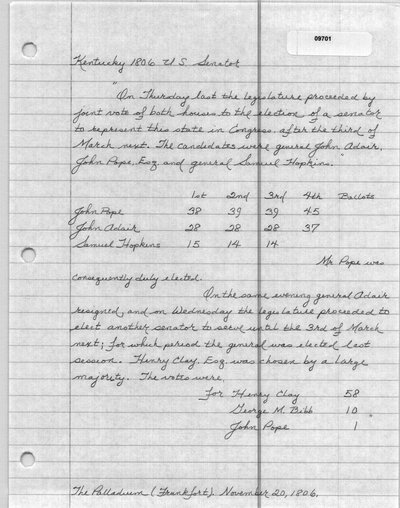 09701
Kentucky 1806 U.S. Senator
"On Thursday last the legislature proceeded by
joint vote of both houses to the election of a senator
to represent this state in Congress, after the third of
March next. The candidates were general John Adair,
John Pope, Esq. and general Samuel Hopkins."
1st 2nd 3rd 4th Ballots
John Pope 38 39 39 45
John Adair 28 28 28 37
Samuel Hopkins 15 14 14
Mr Pope was
consequently duly elected.
On the same evening general Adair
resigned, and on Wednesday the legislature proceeded to
elect another senator to serve until the 3rd of March
next; for which period the general was elected last
session. Henry Clay, Esq. was chosen by a large
majority. The votes were
For Henry Clay 58
George M. Bibb 10
John Pope 1
The Palladium (Frankfort). November 20, 1806.